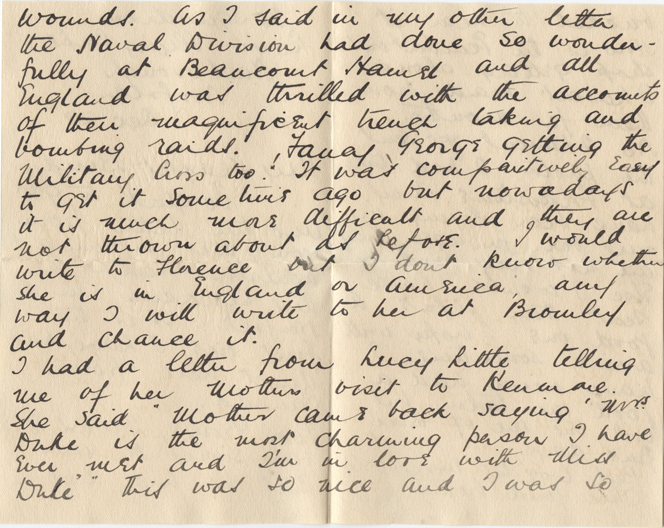 wounds. As I said in my other letter
the Naval Division had done so wonder-
fully at Beaucourt Hamel and all
England was thrilled with the accounts
of their magnificent trench taking and
bombing raids. Fancy George getting the
Military Cross too! It was compartively easy
to get it some time ago but nowadays
it is much more difficult and they are
not thrown about as before. I would
write to Florence but I dont know whether
she is in England or America, any
way I will write to her at Bromley
and chance it.
I had a letter from Lucy Little telling
me of her Mothers visit to Kenmare.
She said "Mother came back saying 'Mrs
Duke is the most charming person I have
ever met and I'm in love with Miss
Duke'" this was so nice and I was so